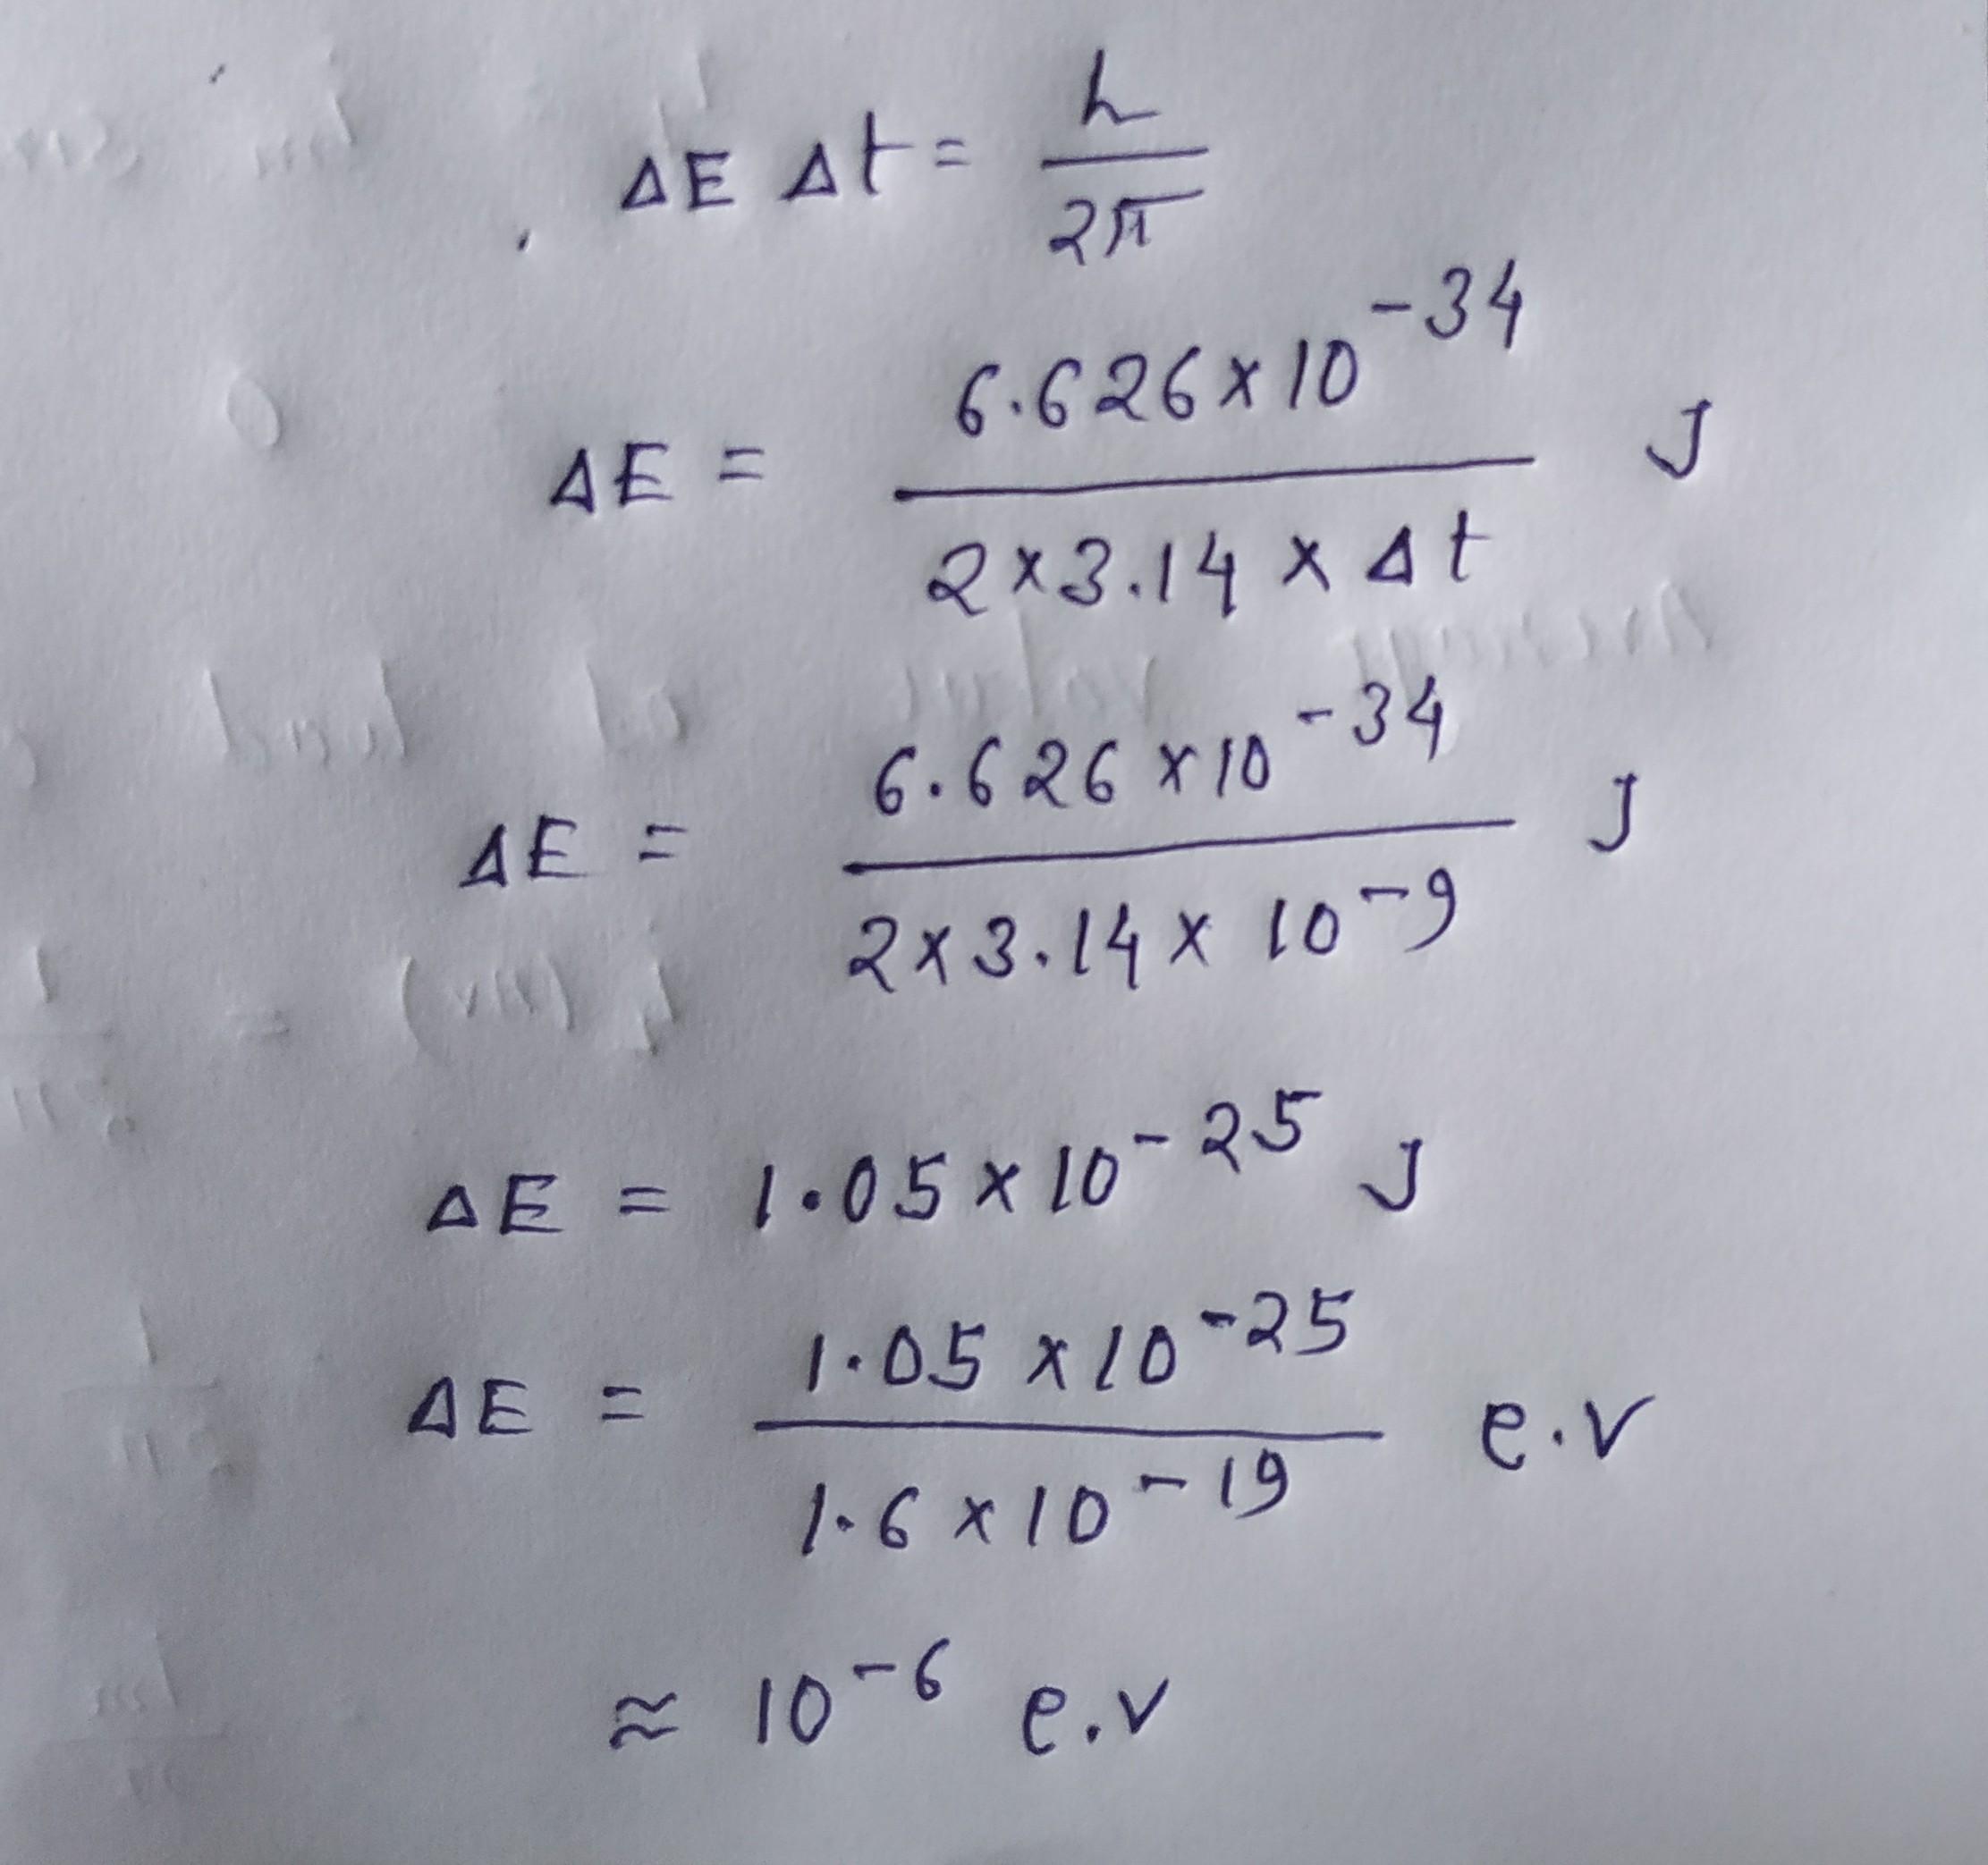 ΔE Δt = h/2π
ΔE = 6.626×10^-34 / 2×3.14×Δt J
ΔE = 6.626×10^-34 / 2×3.14×10^-9 J
ΔE = 1.05×10^-25 J
ΔE = 1.05×10^-25 / 1.6×10^-19 e.v
≈ 10^-6 e.v